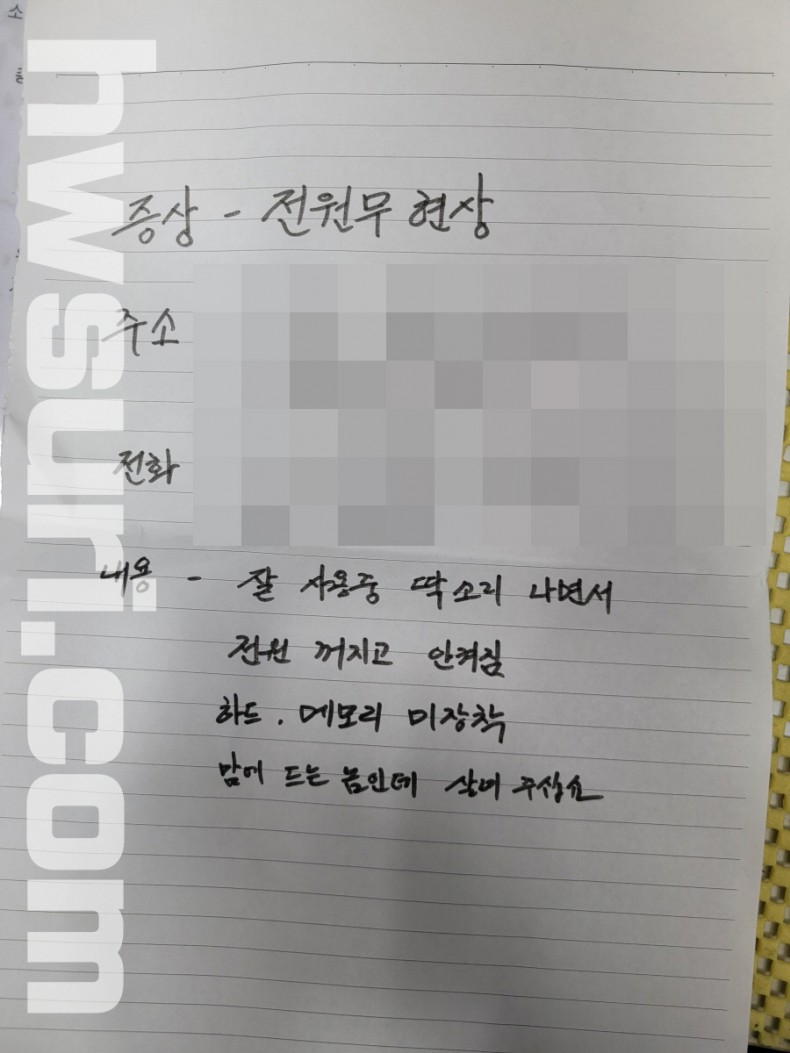 증상 - 전원무 현상
주소
전화
내용 - 잘 사용중 딱소리 나면서
전원 꺼지고 안켜짐
하드. 메모리 미장착
맘에 드는 놈인데 살려 주십쇼
hwsuri.com
소